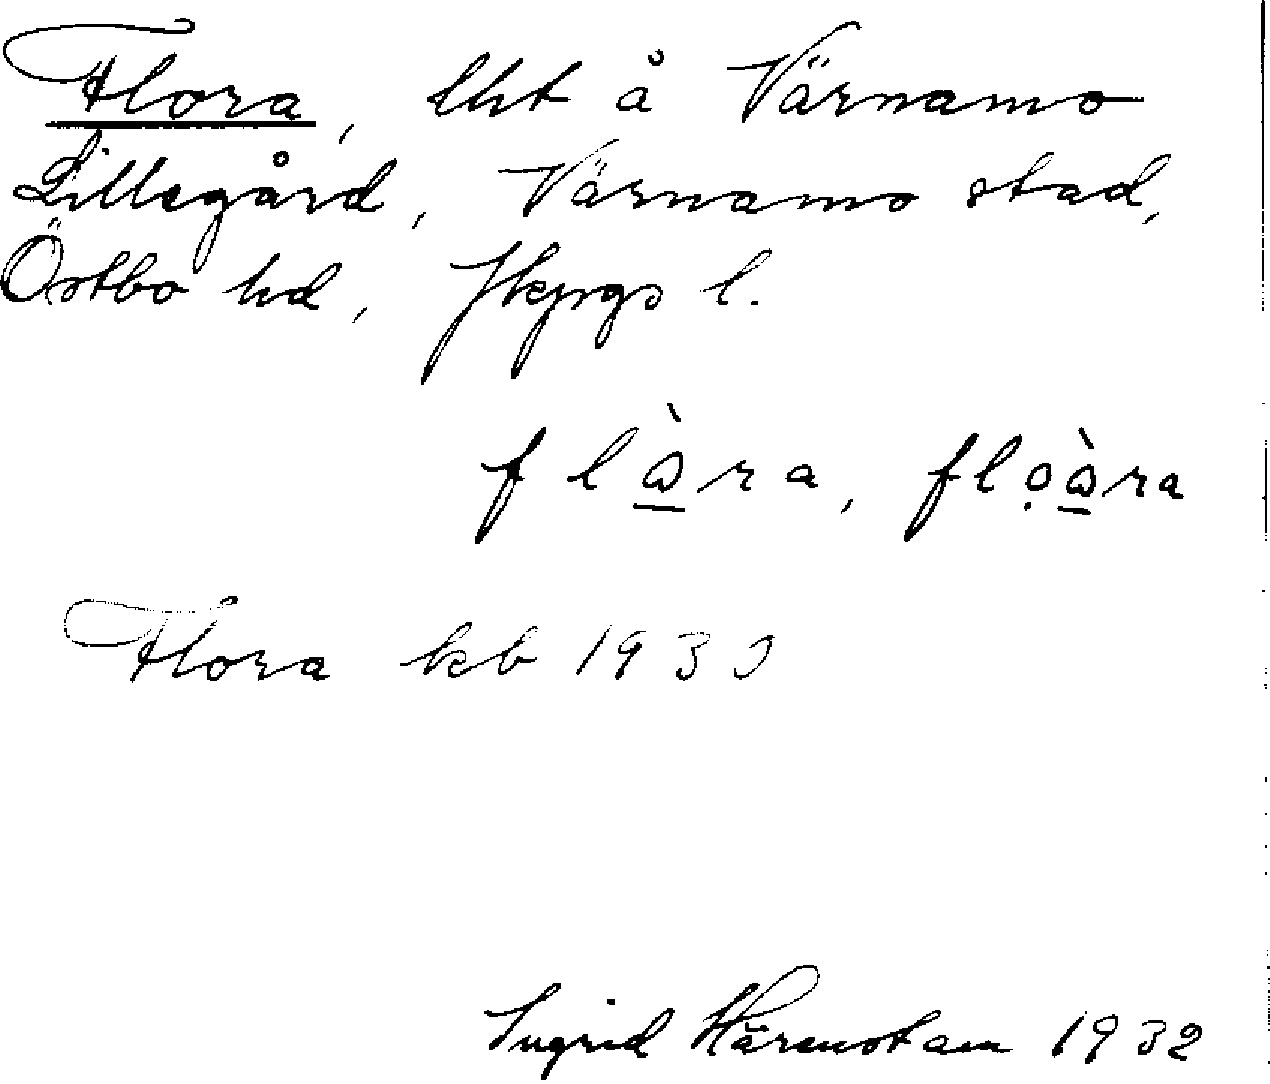 Flora, lht å Värnamo
Lillegård, Värnamo stad,
Östbo hd, Jkpgs l.
flò̲ra, flọò̲ra
Flora kb 1930
Ingrid Härenstam 1932